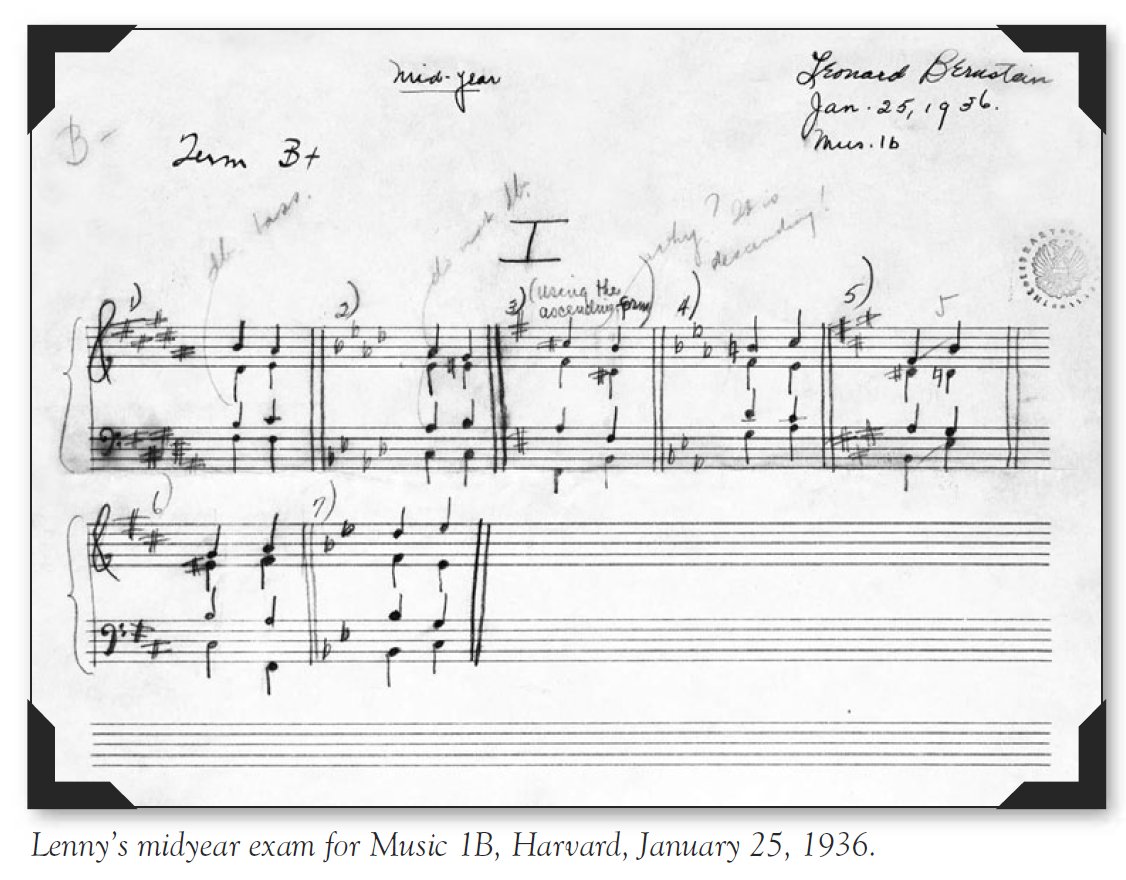 Mid-year
Leonard Bernstein
Jan. 25, 1936.
Mus. 1b
B-
Term B+
db. bass.
do not db.
why? It is
descending!
I
1)
2)
3) (using the
ascending form)
4)
5)
5
6)
7)
Lenny's midyear exam for Music 1B, Harvard, January 25, 1936.